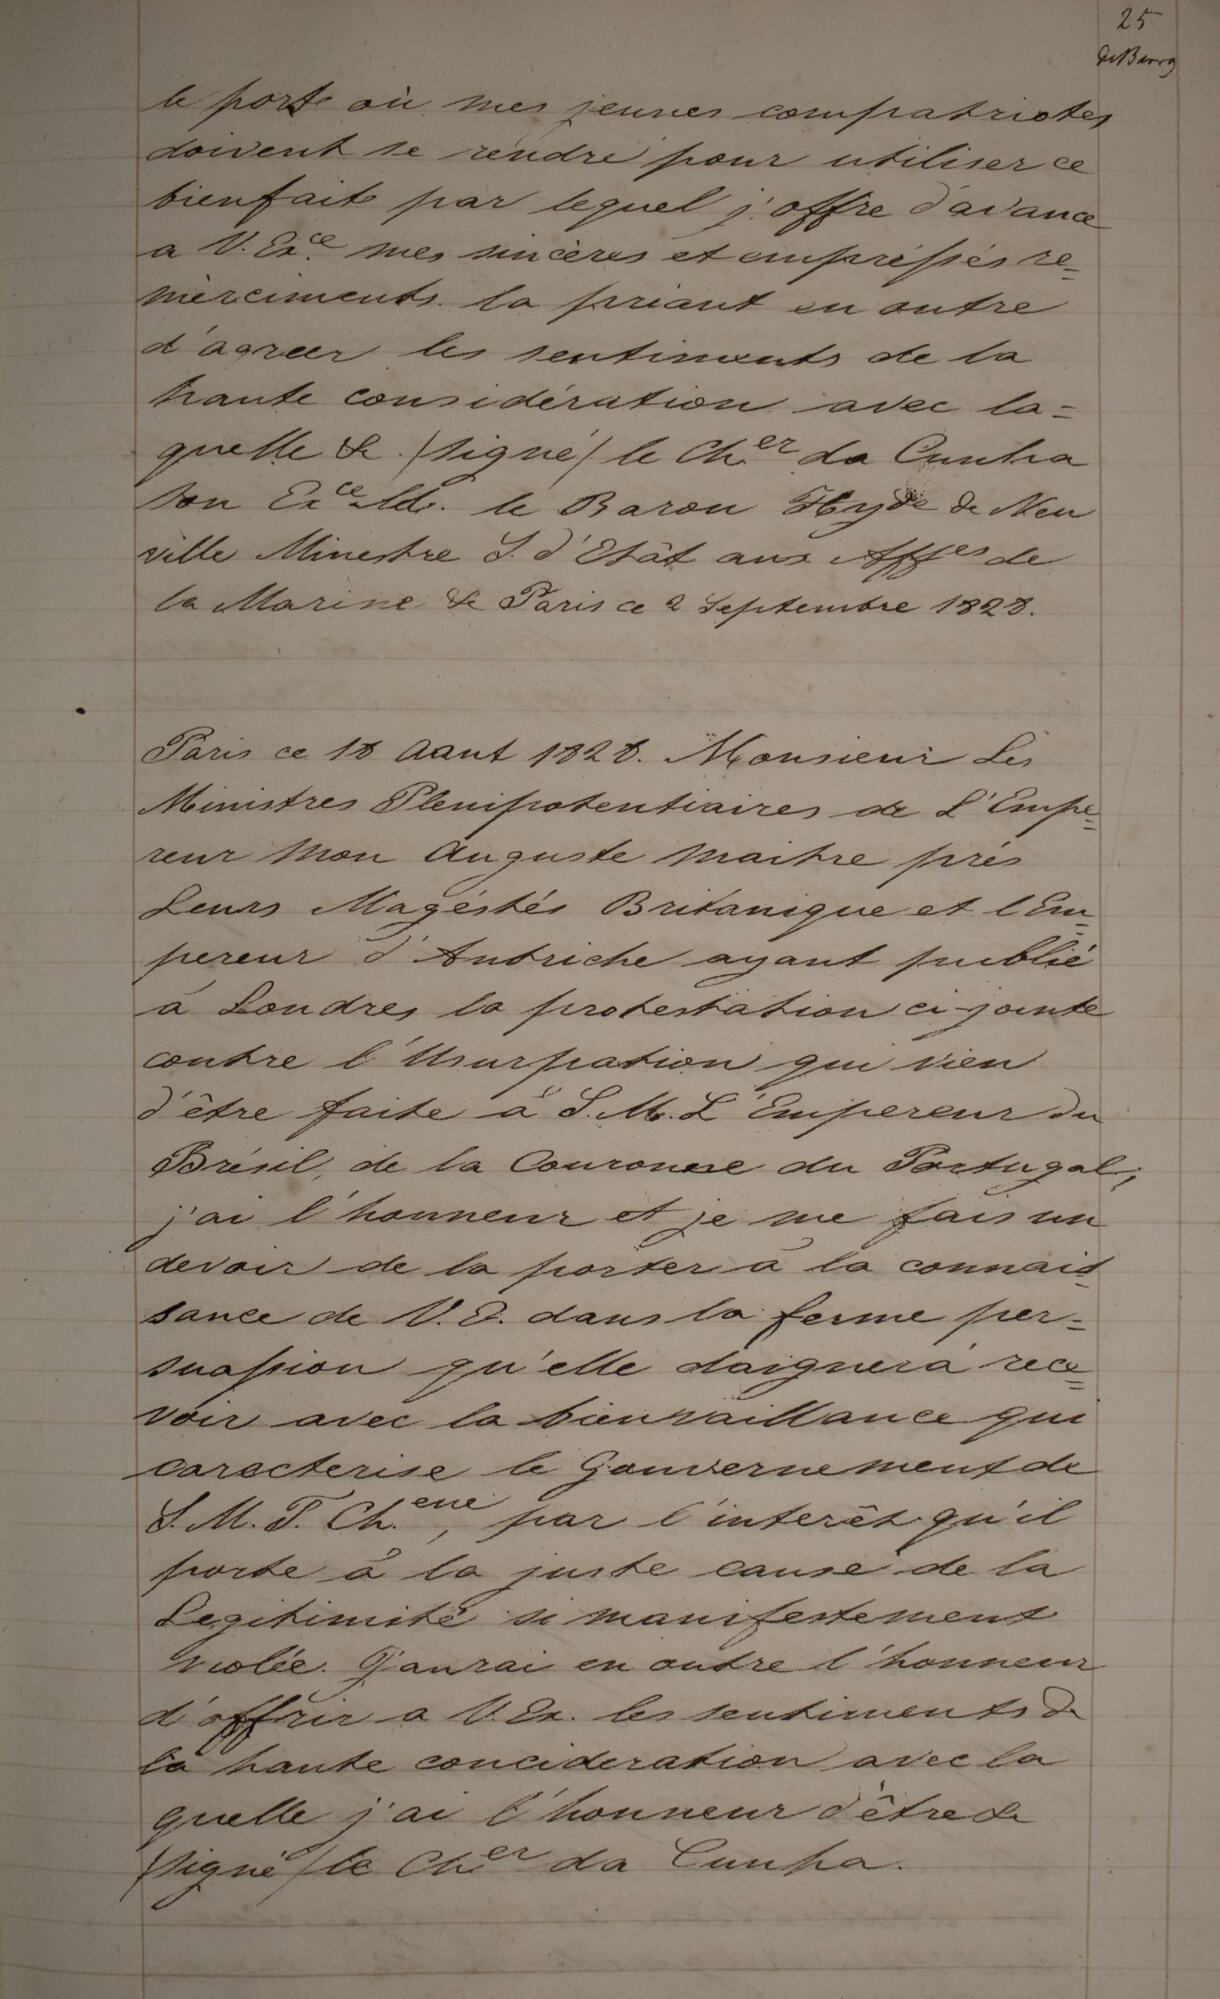 25
le porte où mes jeunes compatriotes
doivent se rendre pour utiliser ce
bienfaite par lequel j'offre d'avance
a V. Ex.ce mes sincères et empréssés re=
mérciments la priant en outre
d'agreer les sentiments de la
haute considération avec la=
quelle & /signé/ le Ch.er da Cunha
Son Ex.ce Mr. le Baron Hyde de Neu
ville Minestre S. d'Etât aux Aff.es de
la Marine & Paris ce 2 Septembre 1828.
Paris ce 18 Aaut 1828. Monsieur Les
Ministres Plenipotentiaires de L'Empe=
reur mon Auguste maitre près
Leurs Magéstés Britanique et l'Em=
pereur d'Autriche ayant publié
à Londres la protestation ci-jointe
contre l'Usurpation qui vien
d'être faite à S. M. L'Empereur du
Brésil, de la Couronne du Portugal,
j'ai l'honneur et je me fais un
devoir de la porter à la connais=
sance de V. E. dans la ferme per=
suassion qu'elle daignera rece=
voir avec la bienvaillance qui
carecterise le Gouvernement de
S. M. T. Ch.ene, par l'interêt qu'il
porte à la juste cause de la
Legitimité si manifestement
violée. J'aurai en outre l'honneur
d'offrir a V. Ex. les sentiments de
la haute concideration avec la
quelle j'ai l'honneur d'être &
/signé/ le Ch.er da Cunha.